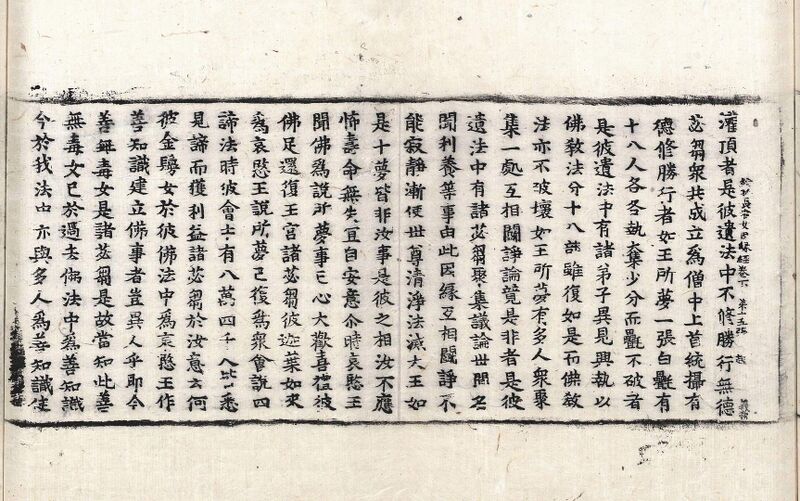 給孤長者女因緣經卷下 第十五張
灌頂者是彼遺法中不修勝行無德
苾芻眾共成立為僧中上首統攝有
德修勝行者如王所夢一張白㲲有
十八人各各執奪少分而㲲不破者
是彼遺法中有諸弟子異見興執以
佛教法分十八部雖復如是而佛教
法亦不破壞如王所夢有多人眾聚
集一處互相鬪諍論竟是非者是彼
遺法中有諸苾芻聚集議論世間名
聞利養等事由此因緣互相鬪諍不
能寂靜漸使世尊清淨法滅大王如
是十夢皆非汝事是彼之相汝不應
怖壽命無失宜自安意尒時哀愍王
聞佛為說所夢事已心大歡喜禮彼
佛足還復王宮諸苾芻彼迦葉如來
為哀愍王說所夢已復為眾會說四
諦法時彼會中有八萬四千人出一悉
見諦而獲利益諸苾芻於汝意云何
彼金鬘女於彼佛法中為哀愍王作
善知識建立佛事者豈異人乎即今
善無毒女是諸苾芻是故當知此善
無毒女已於過去佛法中為善知識
今於我法中亦與多人為善知識住